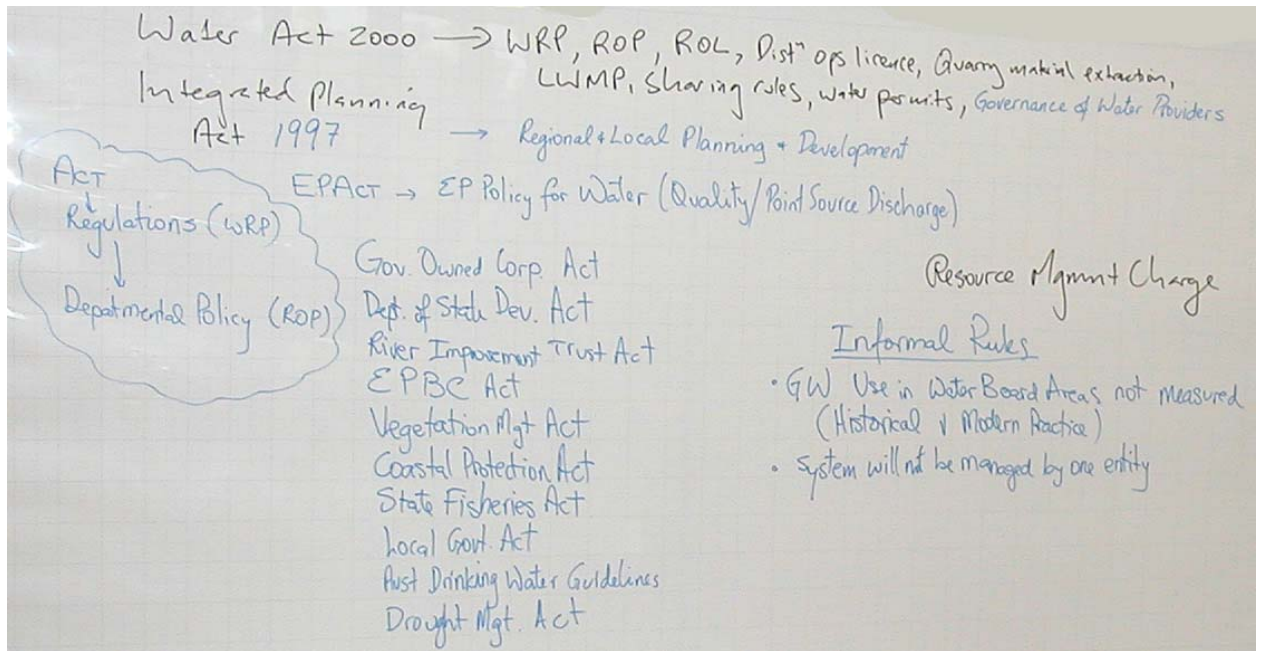 Water Act 2000 → WRP, ROP, ROL, Distⁿ ops licence, Quarry material extraction,
LWMP, sharing rules, water permits, Governance of Water Providers
Integrated Planning
Act 1997 → Regional + Local Planning + Development
EPAct → EP Policy for Water (Quality/Point Source Discharge)
Act
↓
Regulations (WRP)
↓
Depatmental Policy (ROP)
Gov. Owned Corp. Act
Dept. of State Dev. Act
River Improvement Trust Act
EPBC Act
Vegetation Mgt Act
Coastal Protection Act
State Fisheries Act
Local Govt. Act
Aust Drinking Water Guidelines
Drought Mgt. Act
Resource Mgmnt Charge
Informal Rules
• GW Use in Water Board Areas not measured
(Historical v Modern Practice)
• System will not be managed by one entity